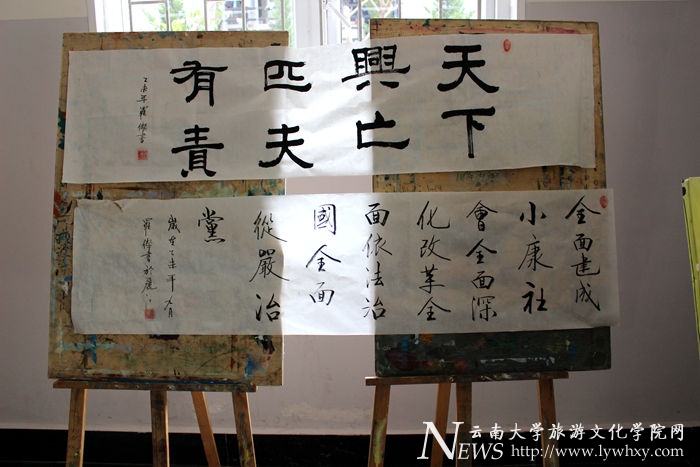 天下
興亡
匹夫
有責
乙未年羅書
全面建成
小康社
會全面深
化改革全
面依法治
國全面
從嚴治
黨
歲在乙未年九月
羅書於麗江
NEWS 云南大学旅游文化学院网
http://www.lywhxy.com